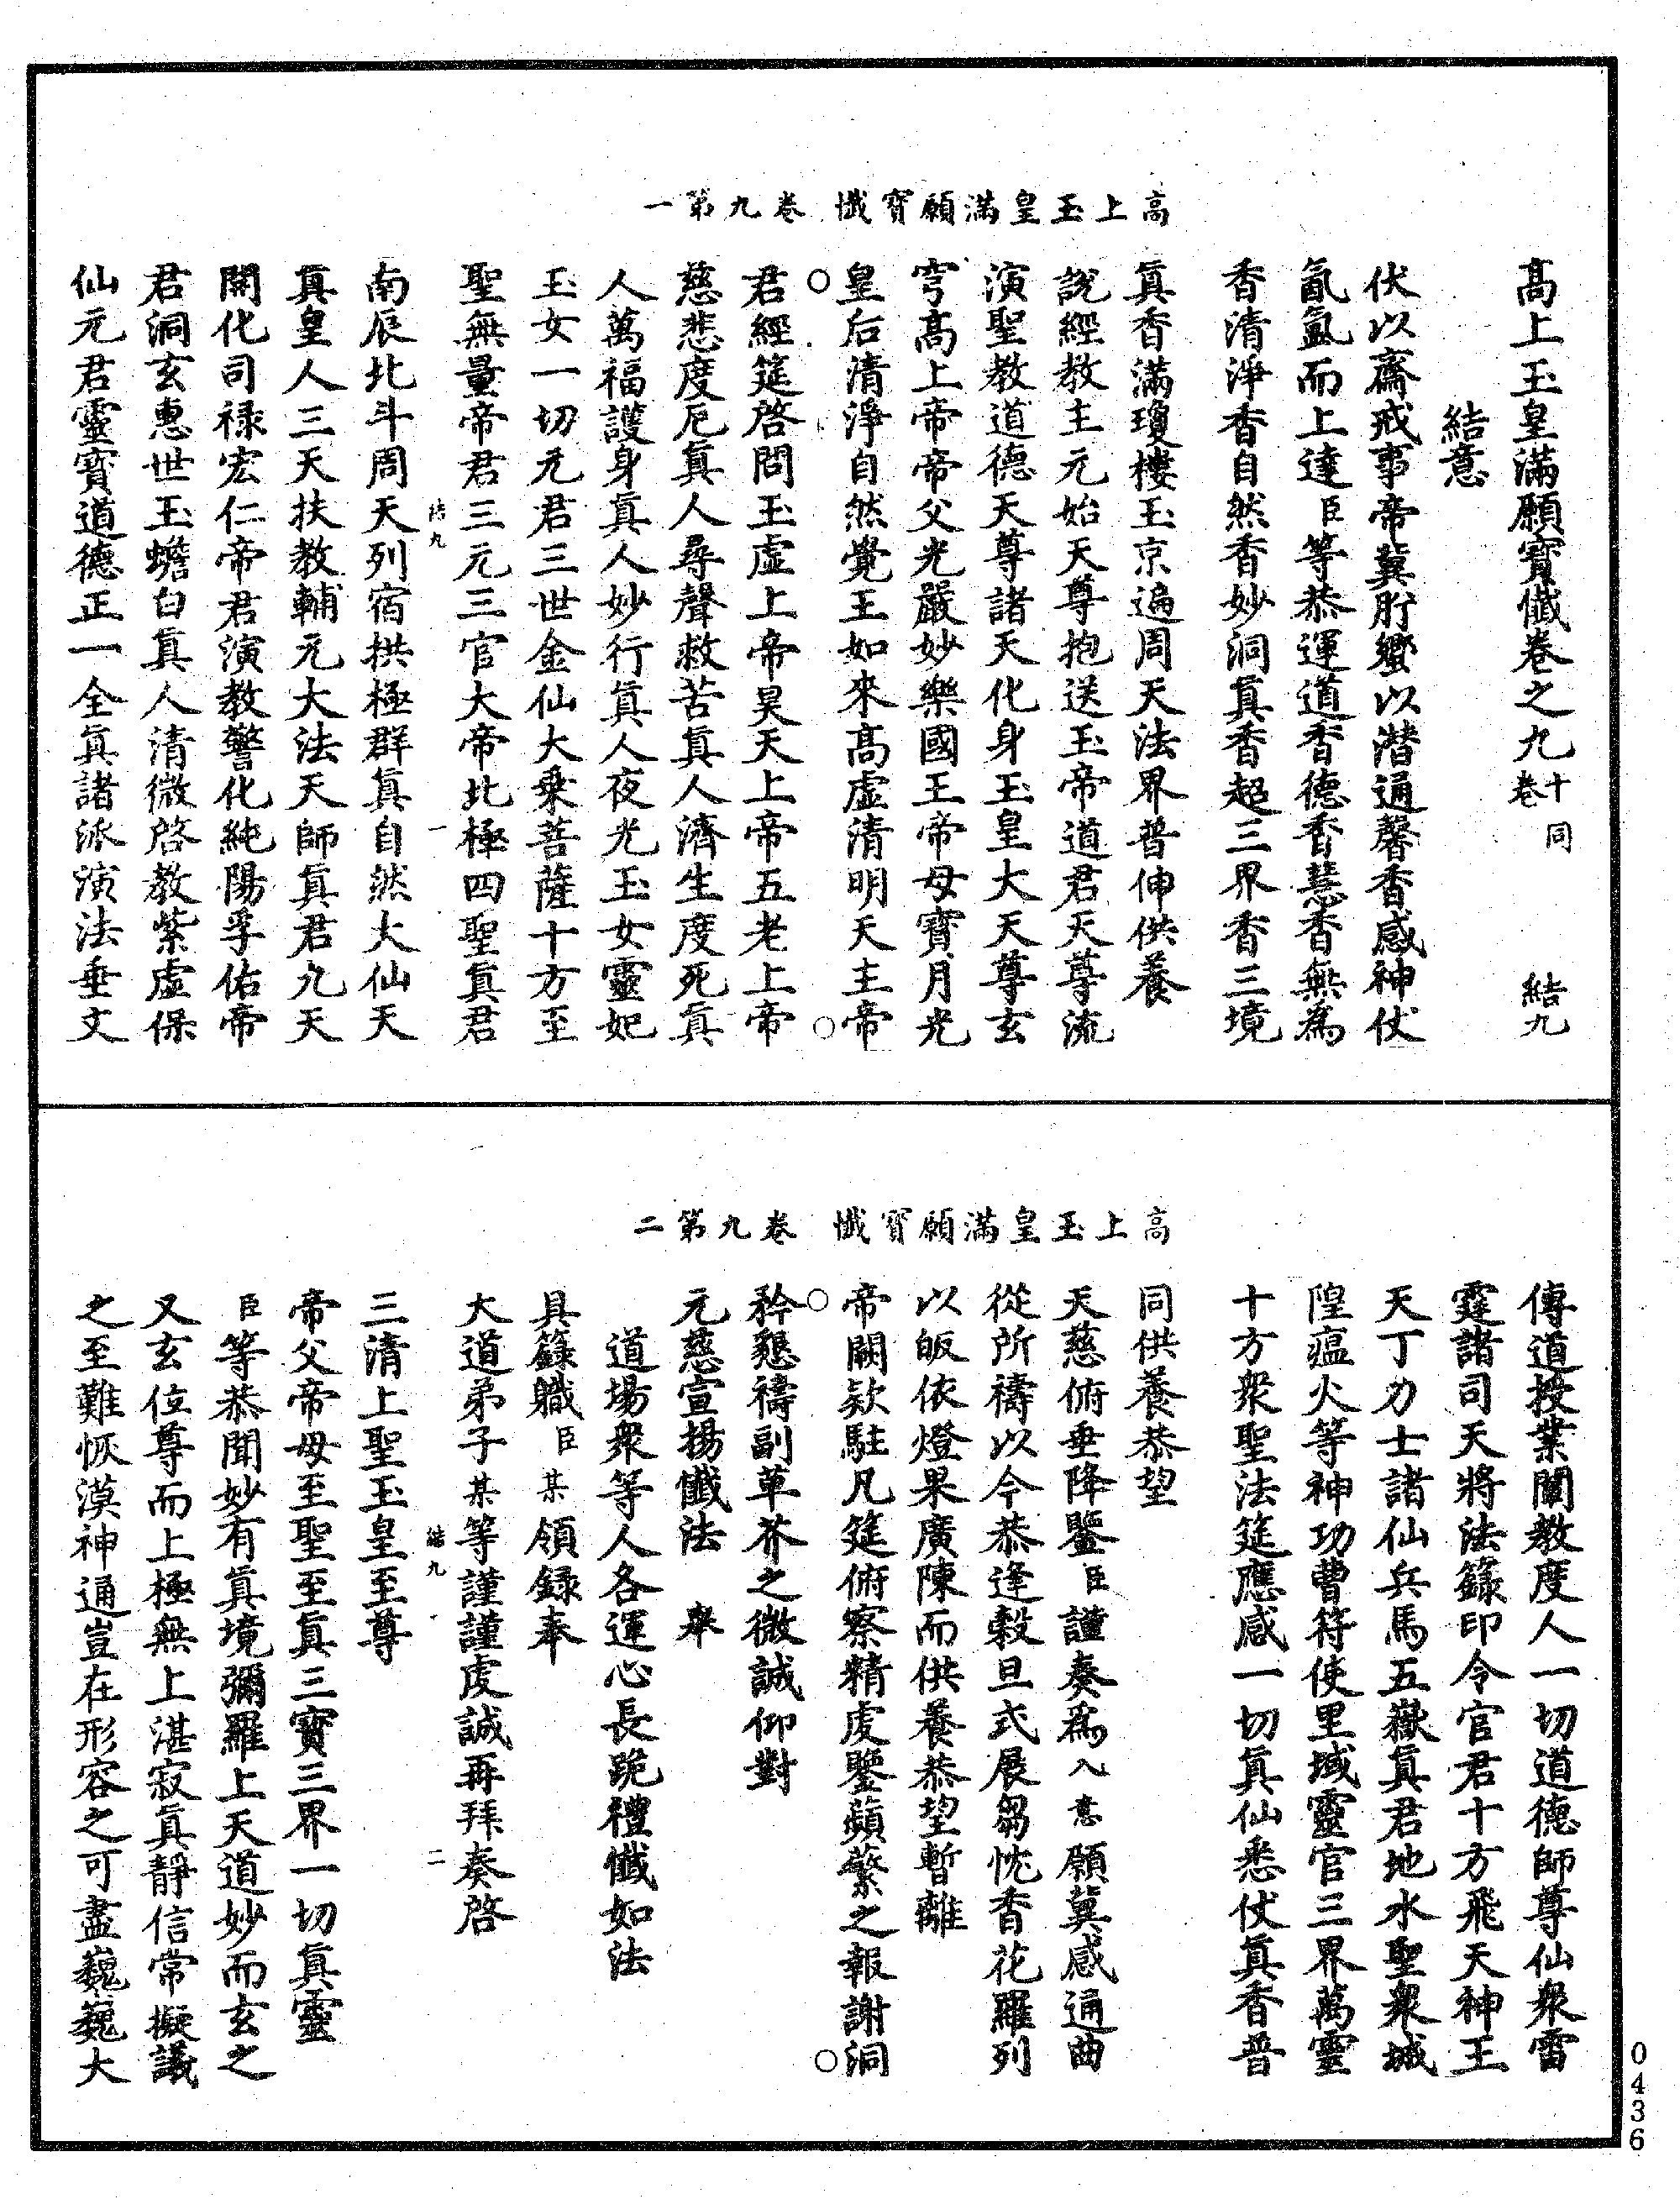 高上玉皇滿願寶懺　卷九第一
高上玉皇滿願寶懺卷之九十卷同　結九
結意
伏以齋戒事帝冀肸蠁以潜通馨香感神仗
氤氳而上達臣等恭運道香德香慧香無為
香清淨香自然香妙洞真香超三界香三境
真香滿瓊樓玉京遍周天法界普伸供養
說經教主元始天尊抱送玉帝道君天尊流
演聖教道德天尊諸天化身玉皇大天尊玄
穹高上帝帝父光嚴妙樂國王帝母寶月光
皇后清淨自然覺王如來高虛清明天主帝
君經筵啓問玉虛上帝昊天上帝五老上帝
慈悲度厄真人尋聲救苦真人濟生度死真
人萬福護身真人妙行真人夜光玉女靈妃
玉女一切元君三世金仙大乗菩薩十方至
聖無量帝君三元三官大帝北極四聖真君
結九　一
南辰北斗周天列宿拱極群真自然大仙天
真皇人三天扶教輔元大法天師真君九天
開化司禄宏仁帝君演教警化純陽孚佑帝
君洞玄惠世玉蟾白真人清微啓教紫虛保
仙元君靈寶道德正一全真諸派演法垂文
高上玉皇滿願寶懺　卷九第二
傳道授業闡教度人一切道德師尊仙衆雷
霆諸司天將法籙印令官君十方飛天神王
天丁力士諸仙兵馬五嶽真君地水聖衆城
隍瘟火等神功曹符使里域靈官三界萬靈
十方衆聖法筵應感一切真仙悉仗真香普
同供養恭望
天慈俯垂降鑒臣謹奏爲入意願冀感通曲
從所禱以今恭逢榖旦式展芻忱香花羅列
以皈依燈果廣陳而供養恭望暫離
帝闕欵駐凡筵俯察精虔鑒蘋蘩之報謝洞
矜懇禱副草芥之微誠仰對
元慈宣揚懺法　舉
道場衆等人各運心長跪禮懺如法
具籙職臣某領録奉
大道弟子某等謹謹虔誠再拜奏啓
結九　二
三清上聖玉皇至尊
帝父帝母至聖至真三寶三界一切真靈
臣等恭聞妙有真境彌羅上天道妙而玄之
又玄位尊而上極無上湛寂真靜信常擬議
之至難恢漠神通豈在形容之可盡巍巍大
0436